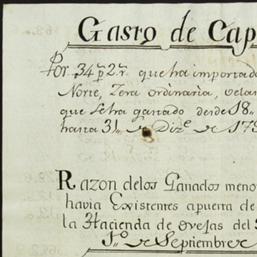 Gasto de Cap
Por 34 p 2 r. que ha importado
Norte, Zera ordinaria, velas
que se ha gastado desde 18
hasta 31 de Diz.e de 179
Razon delos Ganados meno
havia Existentes apuerta de
la Hacienda de ovejas del
1.o de Septiembre